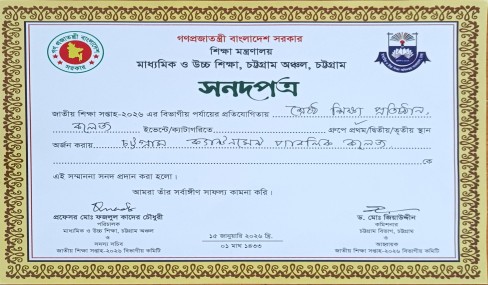 গণপ্রজাতন্ত্রী বাংলাদেশ সরকার
শিক্ষা মন্ত্রণালয়
মাধ্যমিক ও উচ্চ শিক্ষা, চট্টগ্রাম অঞ্চল, চট্টগ্রাম
সনদপত্র
জাতীয় শিক্ষা সপ্তাহ-২০২৬ এর বিভাগীয় পর্যায়ের প্রতিযোগিতায় শ্রেষ্ঠ শিক্ষা প্রতিষ্ঠান,
কলেজ ইভেন্টে/ক্যাটাগরিতে গ্রুপে প্রথম/দ্বিতীয়/তৃতীয় স্থান
অর্জন করায় চট্টগ্রাম ক্যান্টনমেন্ট পাবলিক কলেজ
কে
এই সম্মাননা সনদ প্রদান করা হলো।
আমরা তাঁর সর্বাঙ্গীণ সাফল্য কামনা করি।
প্রফেসর মোঃ ফজলুল কাদের চৌধুরী
পরিচালক
মাধ্যমিক ও উচ্চ শিক্ষা, চট্টগ্রাম অঞ্চল
ও
সদস্য সচিব
জাতীয় শিক্ষা সপ্তাহ-২০২৬ বিভাগীয় কমিটি
১৫ জানুয়ারি ২০২৬ খ্রি.
০১ মাঘ ১৪৩৩
ড. মোঃ জিয়াউদ্দীন
কমিশনার
চট্টগ্রাম বিভাগ, চট্টগ্রাম
ও
আহ্বায়ক
জাতীয় শিক্ষা সপ্তাহ-২০২৬ বিভাগীয় কমিটি